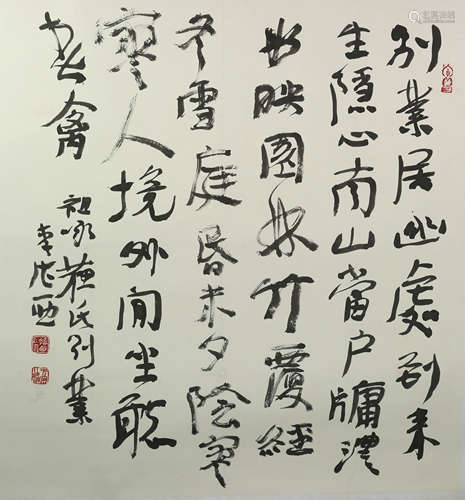 別業居幽處到来
生隱心南山當户牖澧
水映園林竹覆經
冬雪庭昏未夕陰寥
寥人境外閒坐聽
春禽
祖咏蘇氏別業